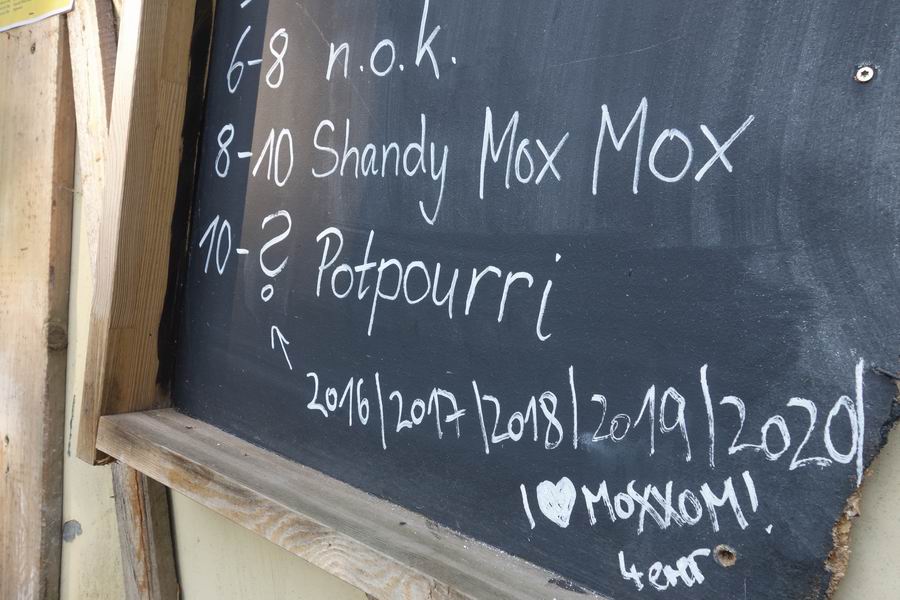 6-8 n.o.k.
8-10 Shandy Mox Mox
10-? Potpourri
2016|2017|2018|2019|2020|
I ♥ MOXXOM!